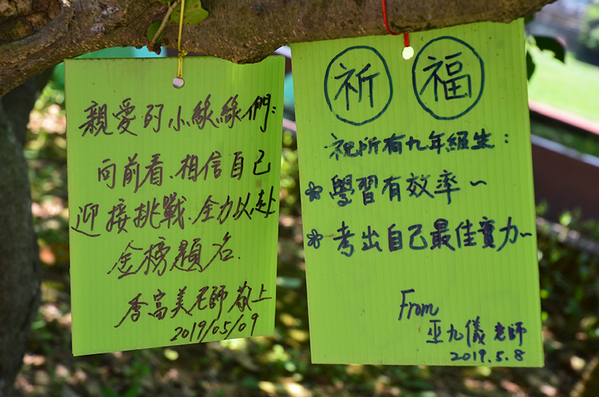 親愛的小綠綠們:
向前看.相信自己
迎接挑戰.全力以赴
金榜題名.
李富美老師 敬上
2019/05/09
祈福
祝所有九年級生:
※學習有效率~
※考出自己最佳實力~
From
巫九儀老師
2019.5.8